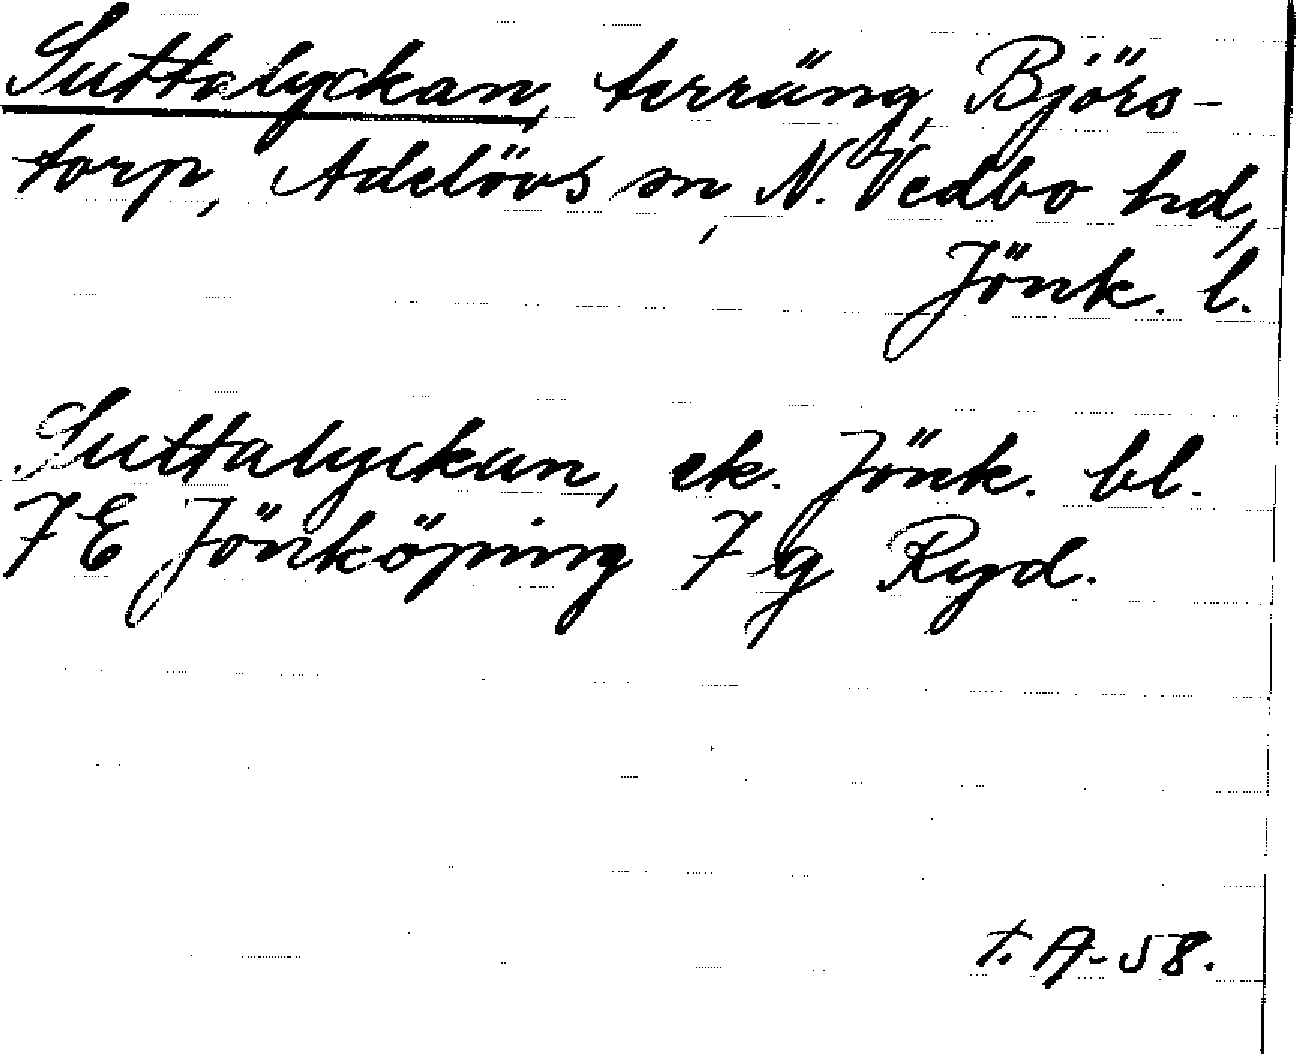 Suttalyckan, terräng, Björs-
torp, Adelövs sn, N. Vedbo hd,
Jönk. l.
Suttalyckan, ek. Jönk. bl.
7E Jönköping 7 g Ryd.
t. A-58.